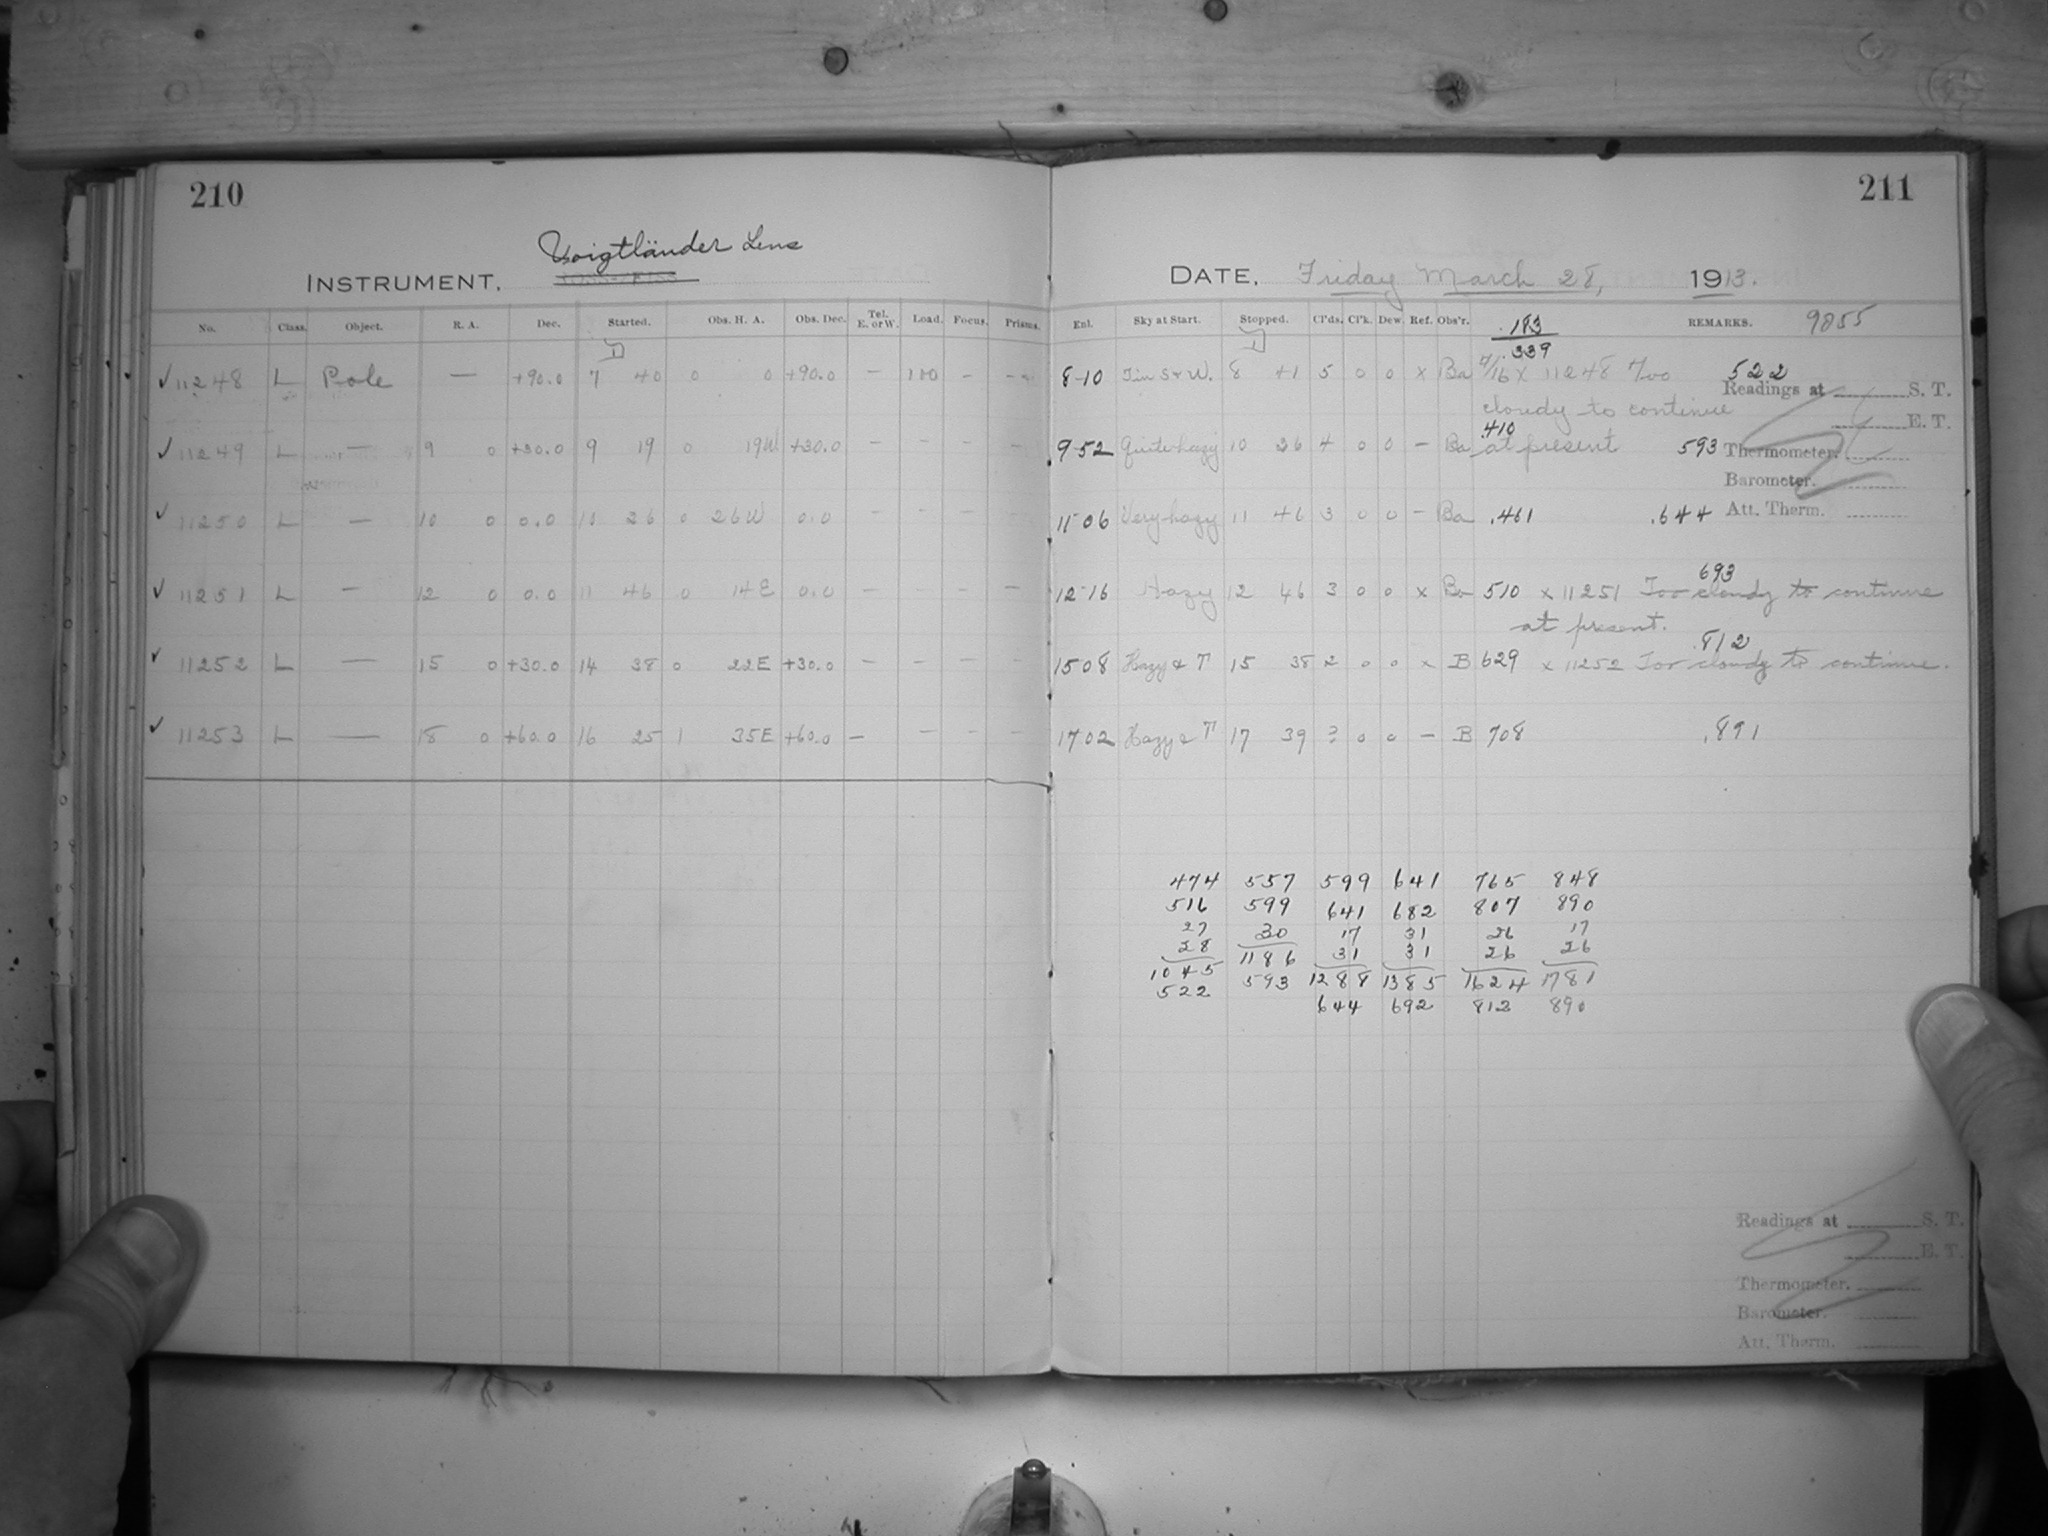 210
Voigtländer Lens
INSTRUMENT.
No. Class. Object. R. A. Dec. Started. Obs. H. A. Obs. Dec. Tel. E. or W. Load. Focus. Prisms.
✓ 11248 L Pole — +90.0 7 40 0 0 +90.0 — 100 — —
✓ 11249 L — 9 0 +30.0 9 19 0 19W +30.0 — — — —
✓ 11250 L — 10 0 0.0 10 26 0 26W 0.0 — — — —
✓ 11251 L — 12 0 0.0 11 46 0 14E 0.0 — — — —
✓ 11252 L — 15 0 +30.0 14 38 0 22E +30.0 — — — —
✓ 11253 L — 18 0 +60.0 16 25 1 35E +60.0 — — — —
211
DATE, Friday March 28, 1913.
Enl. Sky at Start. Stopped. Cl'ds. Cl'k. Dew Ref. Obs'r. .183 REMARKS. 9855
.339
8-10 S & W. 8 41 5 0 0 x Ba 7/16 x 11248 522
Readings at S. T.
cloudy to continue
E. T.
.410
9-52 Quite hazy 10 26 4 0 0 — Ba at present 593 Thermometer.
Barometer.
11-06 Very hazy 11 46 3 0 0 — Ba .461 .644 Att. Therm.
693
12-16 Hazy 12 46 3 0 0 x Ba 510 x 11251 Too cloudy to continue
at present.
.812
15 08 Hazy & T 15 38 2 0 0 x B 629 x 11252 Too cloudy to continue.
17 02 Hazy & T 17 39 3 0 0 — B 708 .891
474 557 599 641 765 848
516 599 641 682 807 890
27 30 17 31 26 17
28 1186 31 31 26 26
1045 593 1288 1385 1624 1781
522 644 692 812 890
Readings at S. T.
E. T.
Thermometer.
Barometer.
Att. Therm.